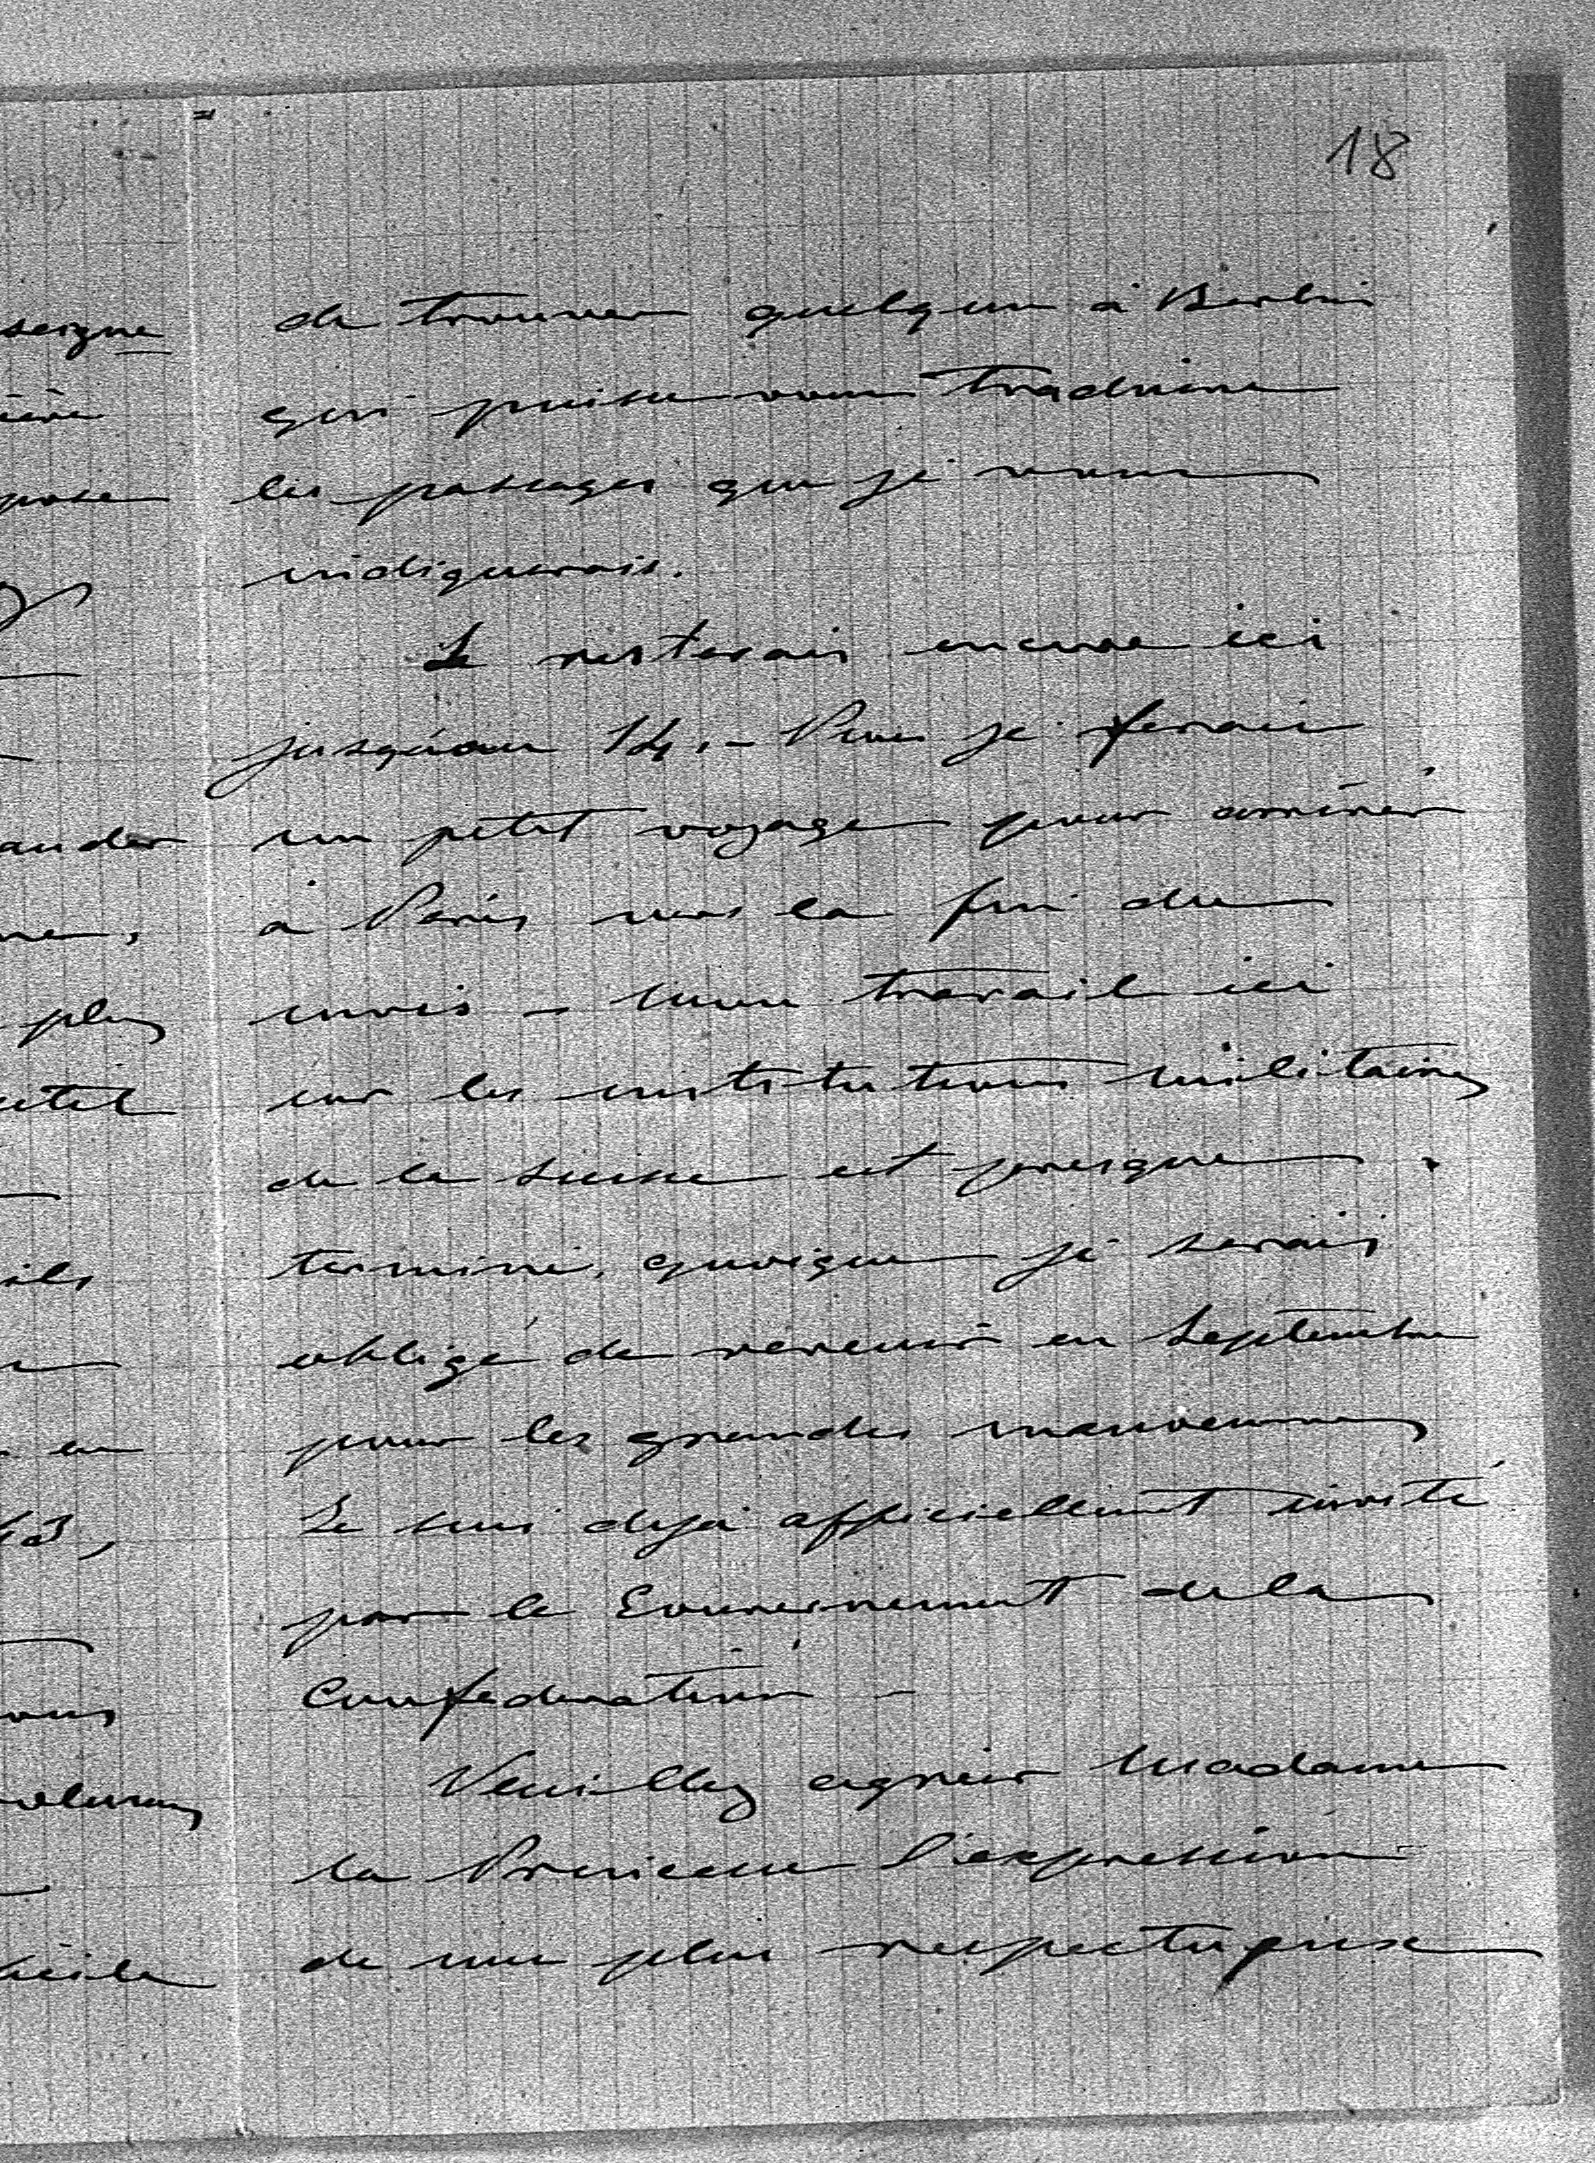 18
de trouver quelqu'un à Berlin
qui puisse vous traduire
les passages que je vous
indiquerais.
Je resterais encore ici
jusqu'au 14. - Puis je ferais
un petit voyage pour arriver
à Paris vers la fin du
mois - Mon travail ici
sur les institutions militaires
de la Suisse est presque
terminé, quoique je serais
obligé de revenir en Septembre
pour les grandes manoeuvres
Je suis déjà officiellement invité
par le Gouvernement de la
Confédération -
Veuillez agréer Madame
la Princesse l'expression
de mon plus respectueuse